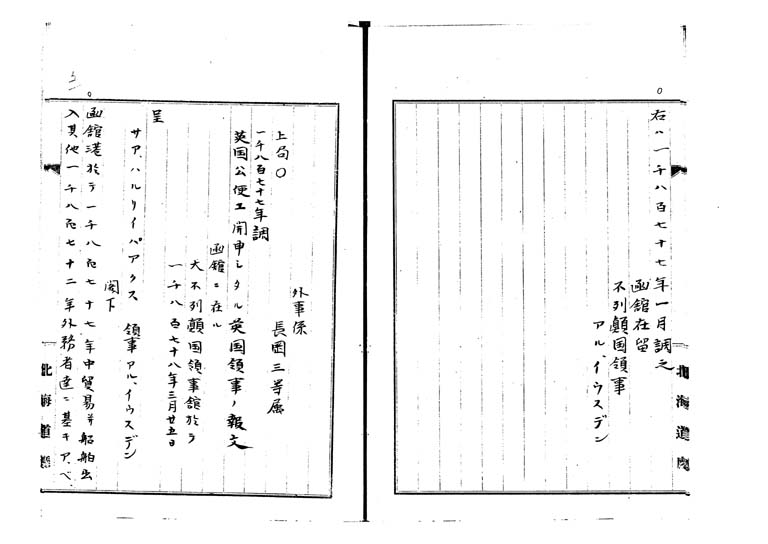 右ハ一千八百七十七年一月調之
函館在留
不列顛国領事
アル、イウスデン
北海道廳
外事係
長岡三等属
上局〇
一千八百七十七年調
英国公使エ開申シタル英国領事ノ報文
函館ニ在ル
大不列顛国領事舘於テ
一千八百七十八年三月廿五日
呈
サア、ハルリイパアクス
閣下
領事アル、イウスデン
函館港於テ一千八百七十七年中貿易并船舶出
入其他一千八百七十二年外務省達ニ基キア、ベ、
北海道廳